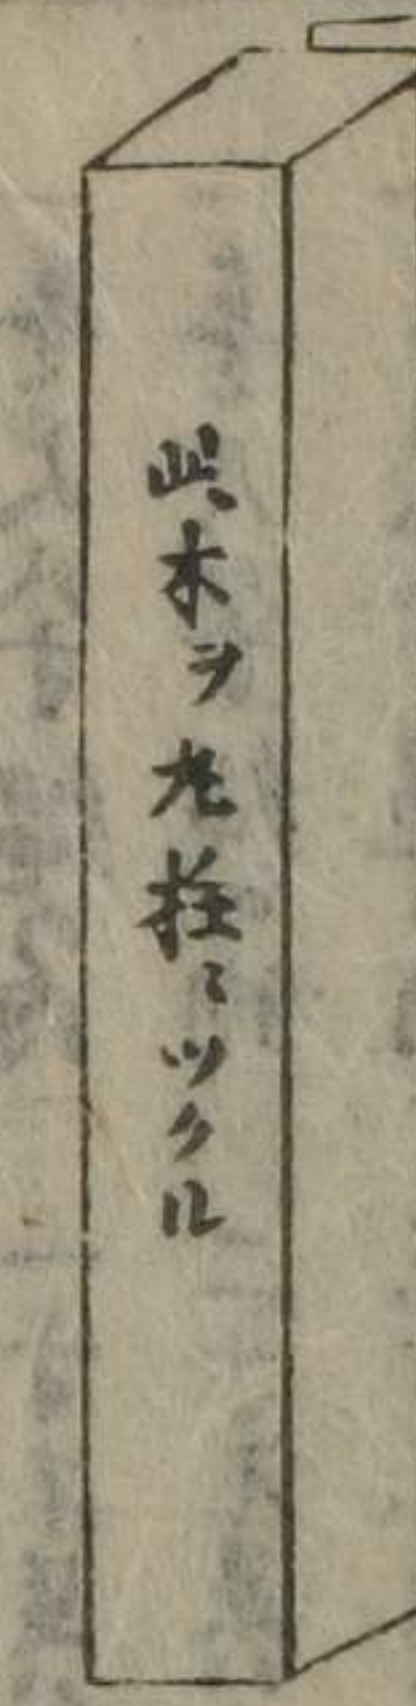 此木ヲ丸柱ニツクル